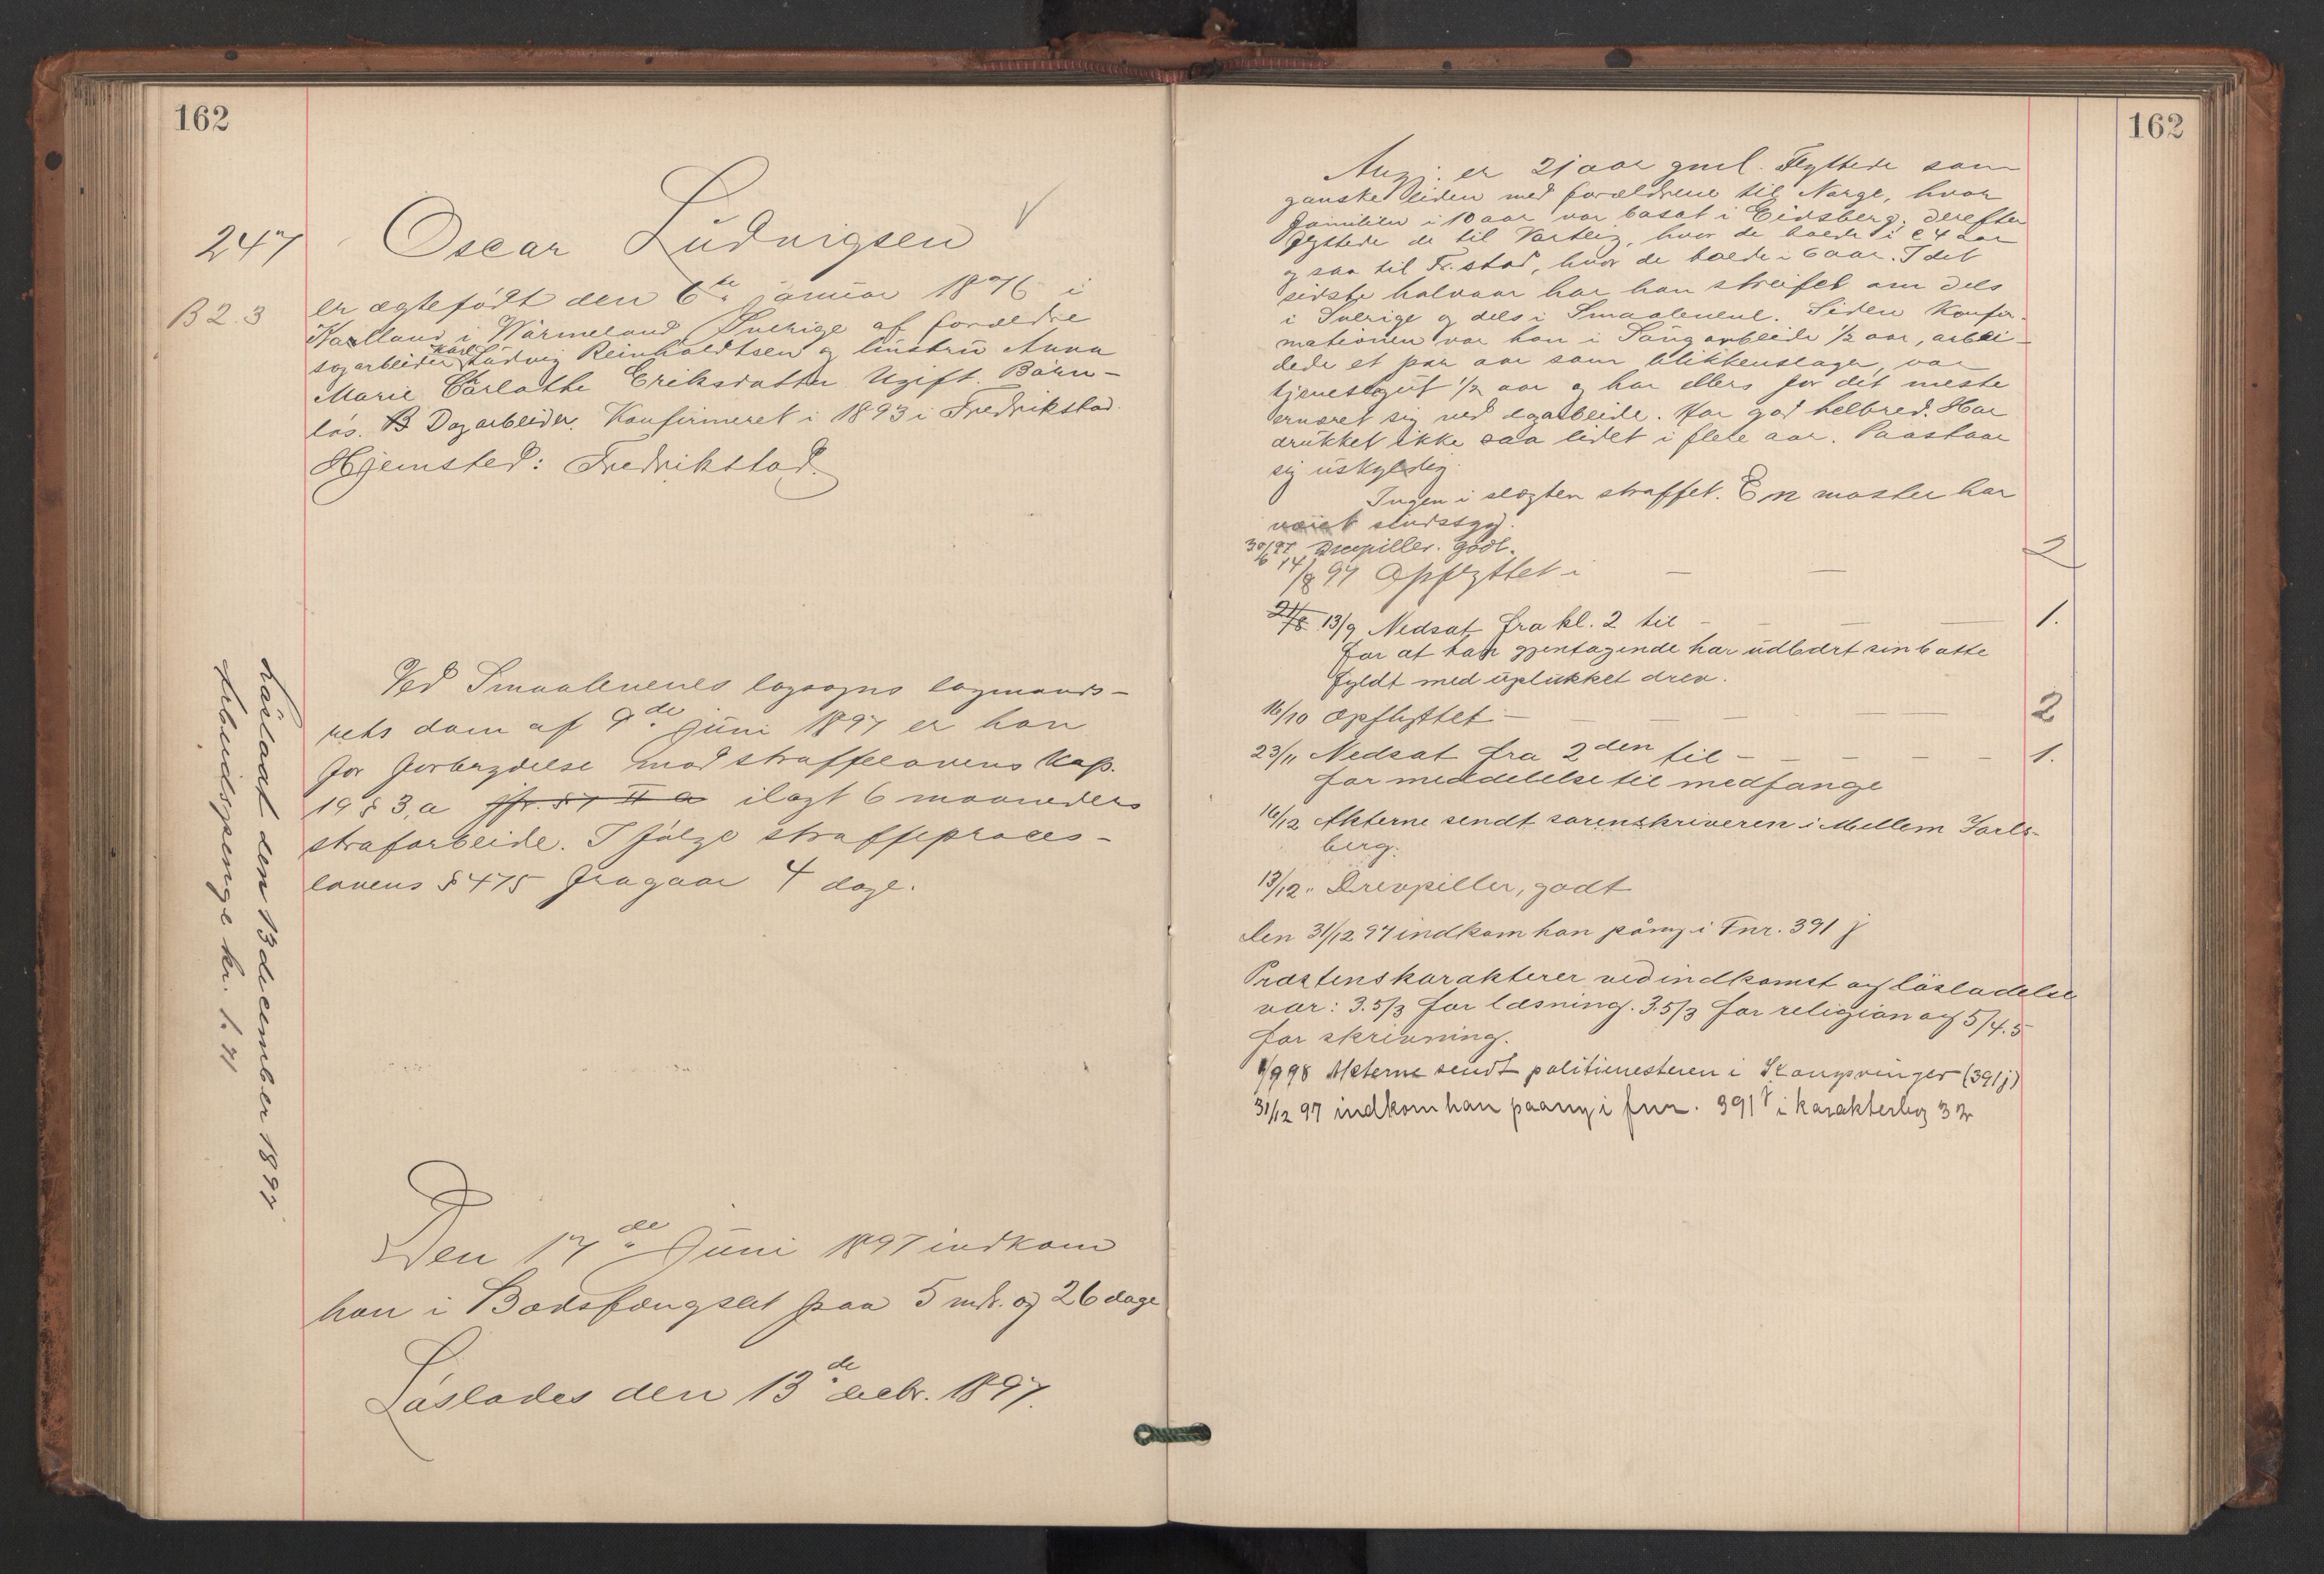 162
247
Oscar Ludvigsen
B 2.3
er ægtefödt den 6te januar 1876 i
Karlland i Wärmeland Sverige af forældre
sagarbeider Karl Ludvig Reinholdtsen og hustru Anna
Marie Charlotte Eriksdatter. Ugift. Barn-
lös. Dagarbeider. Konfirmeret i 1893 i Fredrikstad.
Hjemsted: Fredrikstad.
Ved Smaalenenes lagsogns lagmands-
rets dom af 9de juni 1897 er han
for forbrydelse mod straffelovens Kap.
19 § 3, a jfr. § 7 II a ilagt 6 maaneders
strafarbeide. I fölge straffeproces-
lovens § 475 fragaar 4 dage.
Den 17de Juni 1897 indkom
han i Bodsfængslet paa 5 mdr. og 26 dage
Löslades den 13de decbr. 1897.
Lösladt den 13 december 1897.
Arbeidspenge kr. 1.71
162
Angj. er 21 aar gml. Flyttede som
ganske liden med forældrene til Norge, hvor
familien i 10 aar var bosat i Eidsberg; derefter
flyttede de til Varteig, hvor de boede i c 4 aar
og saa til Fr.stad, hvor de boede i 6 aar. I det
sidste halvaar har han streifet om dels
i Sverige og dels i Smaalenene. Siden konfir-
mationen var han i Saugarbeide ½ aar, arbei-
dede et par aar som blikkenslager, var
tjenestegut ½ aar og har ellers for det meste
ernæret sig ved dagarbeide. Har god helbred. Har
drukket ikke saa lidet i flere aar. Paastaar
sig uskyldig.
Ingen i slægten straffet. En moster har
været sindssyg.
30/6 97 Drevpiller. godt.
14/8 97 Opflyttet i — — 2
21/8 13/9 Nedsat fra kl. 2 til — — — 1.
for at han gjentagende har udbårt sin bötte
fyldt med uplukket drev.
16/10 Opflyttet — — — — — 2
23/11 Nedsat fra 2den til — — — — — 1.
for meddelelse til medfange
16/12 Akterne sendt sorenskriveren i Mellem Jarls-
berg.
13/12 " Drevpiller, godt
Den 31/12 97 indkom han påny i Fnr. 391 j
Præstens karakterer ved indkomst og lösladelse
var: 3.5/3 for læsning. 3.5/3 for religion og 5/4.5
for skrivning.
1/9 98 Akterne sendt politimesteren i Kongsvinger (391 j)
31/12 97 indkom han paany i fnr. 391 j i karakterbog 32